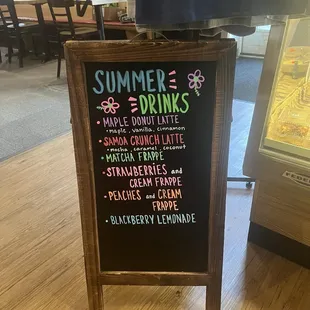 SUMMER
DRINKS
• MAPLE DONUT LATTE
maple, vanilla, cinnamon
• SAMOA CRUNCH LATTE
mocha, caramel, coconut
• MATCHA FRAPPE
• STRAWBERRIES and
CREAM FRAPPE
• PEACHES and CREAM
FRAPPE
• BLACKBERRY LEMONADE